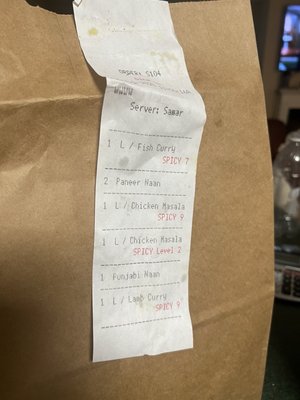 ORDER: S104
Server: Samar
1 L / Fish Curry
SPICY 7
2 Paneer Naan
1 L / Chicken Masala
SPICY 9
1 L / Chicken Masala
SPICY Level 2
1 Punjabi Naan
1 L / Lamb Curry
SPICY 9